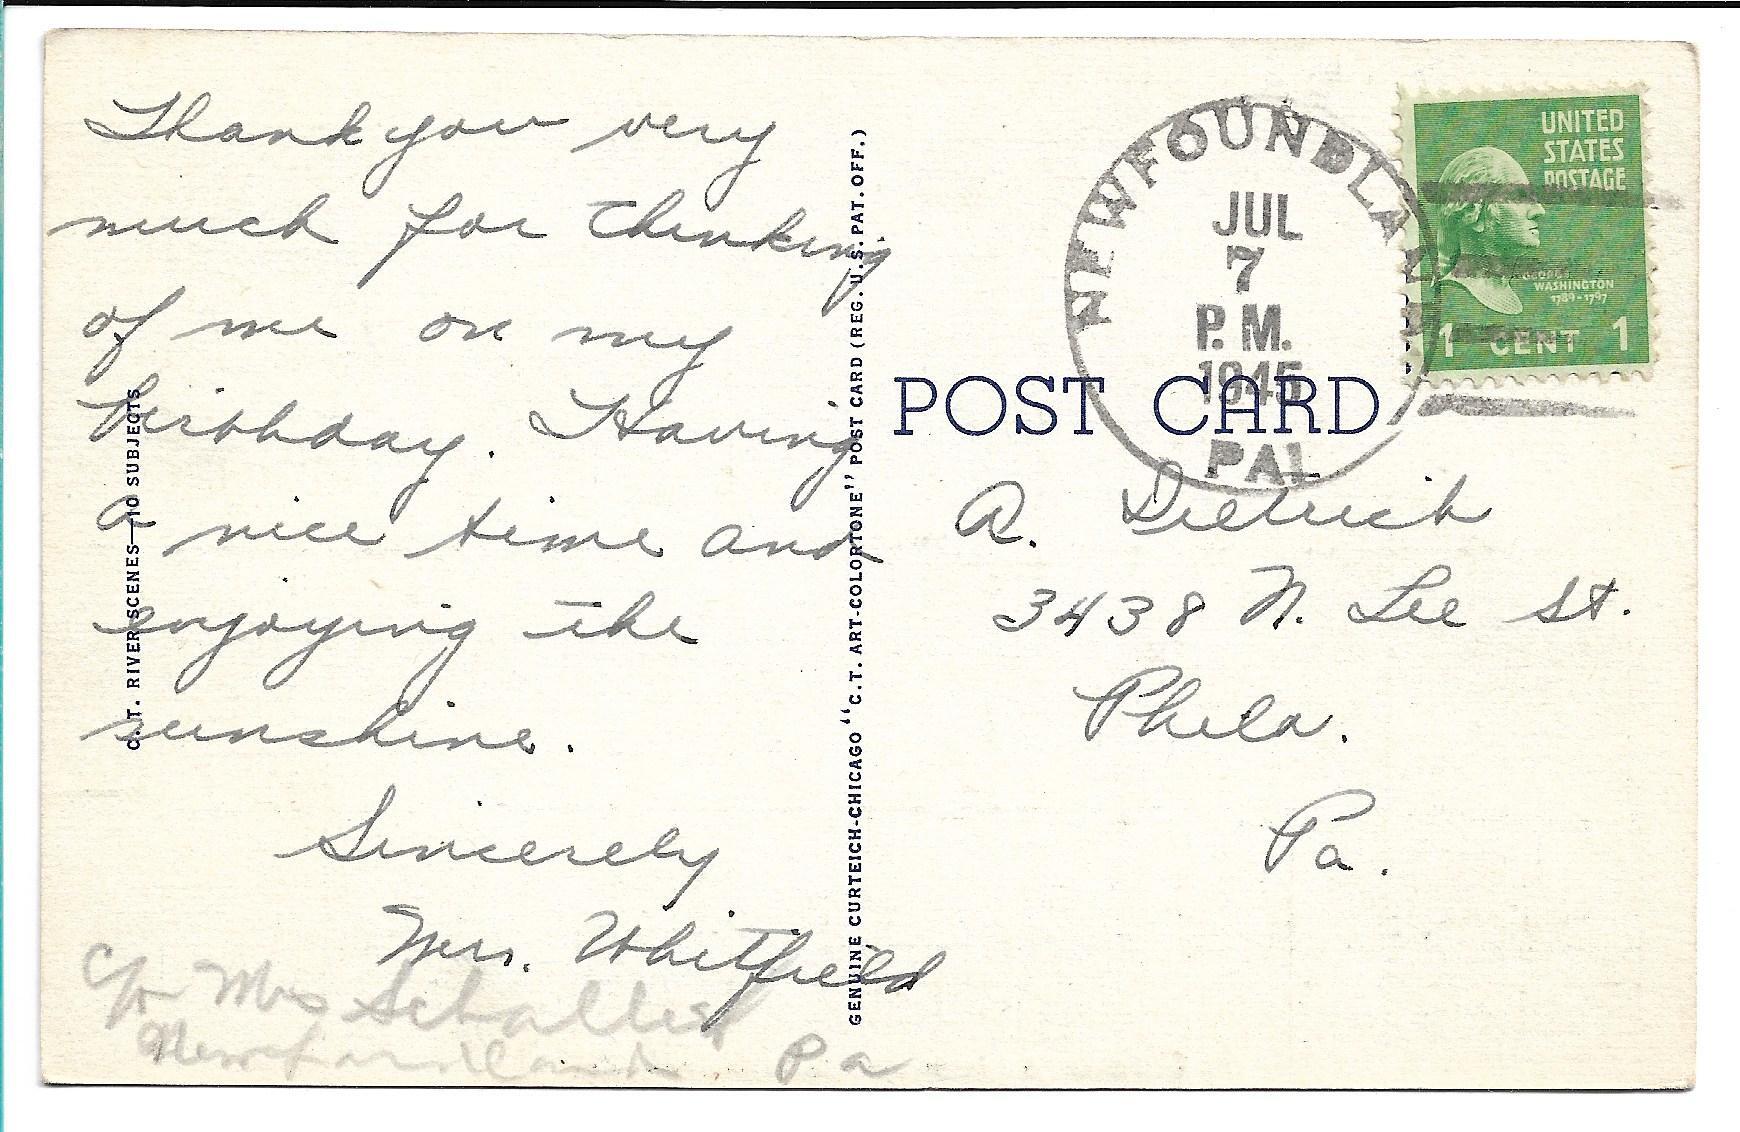 Thank you very
much for thinking
of me on my
birthday. Having
a nice time and
enjoying the
sunshine.
Sincerely
Mrs. Whitfield
c/o Mrs
Newfoundland Pa
C.T. RIVER SCENES—10 SUBJECTS
GENUINE CURTEICH-CHICAGO "C.T. ART-COLORTONE" POST CARD (REG. U.S. PAT. OFF.)
NEWFOUNDLAND
JUL
7
P.M.
1945
PA.
UNITED
STATES
POSTAGE
GEORGE
WASHINGTON
1789-1797
1 CENT 1
POST CARD
A. Dietrich
3438 N. Lee St.
Phila.
Pa.